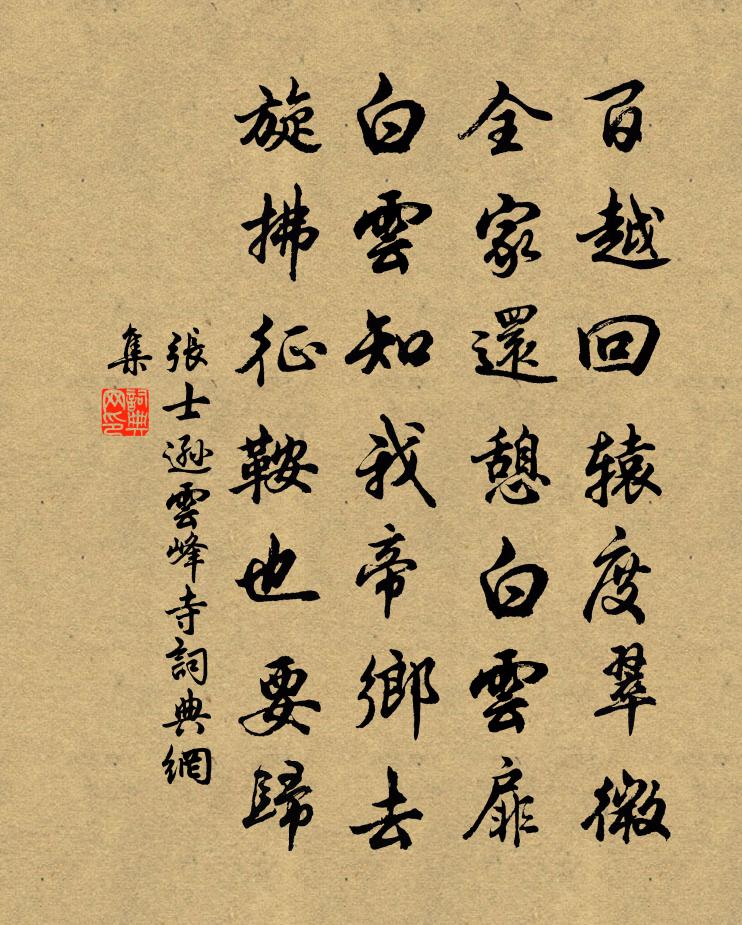 百越回辕度翠微
全家還憩白雲扉
白雲知我帝鄉去
旋拂征鞍也要歸
張士遜雲峰寺詞典網
集
詞典
网印